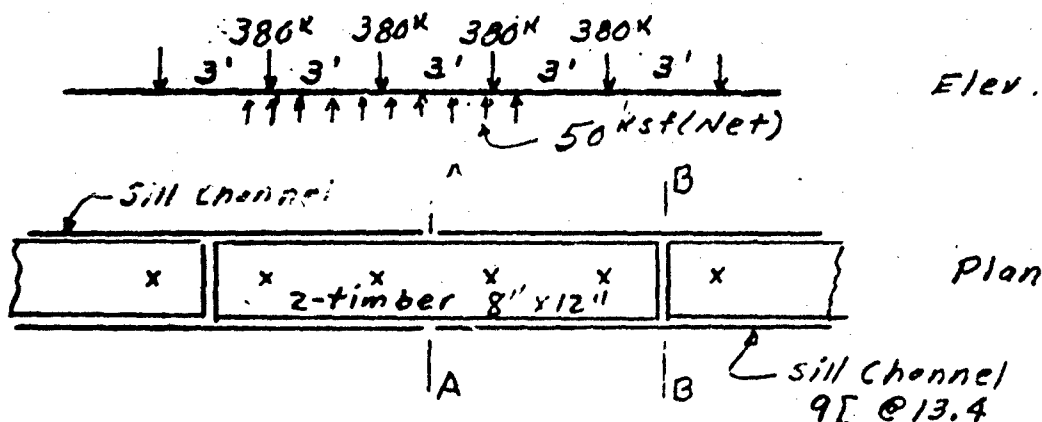 380K 380K 380K 380K
3' 3' 3' 3' 3'
Elev.
50 Ksf(Net)
A B
Sill Channel
Plan
2-timber 8" x 12"
A B
Sill Channel
9[ @ 13.4